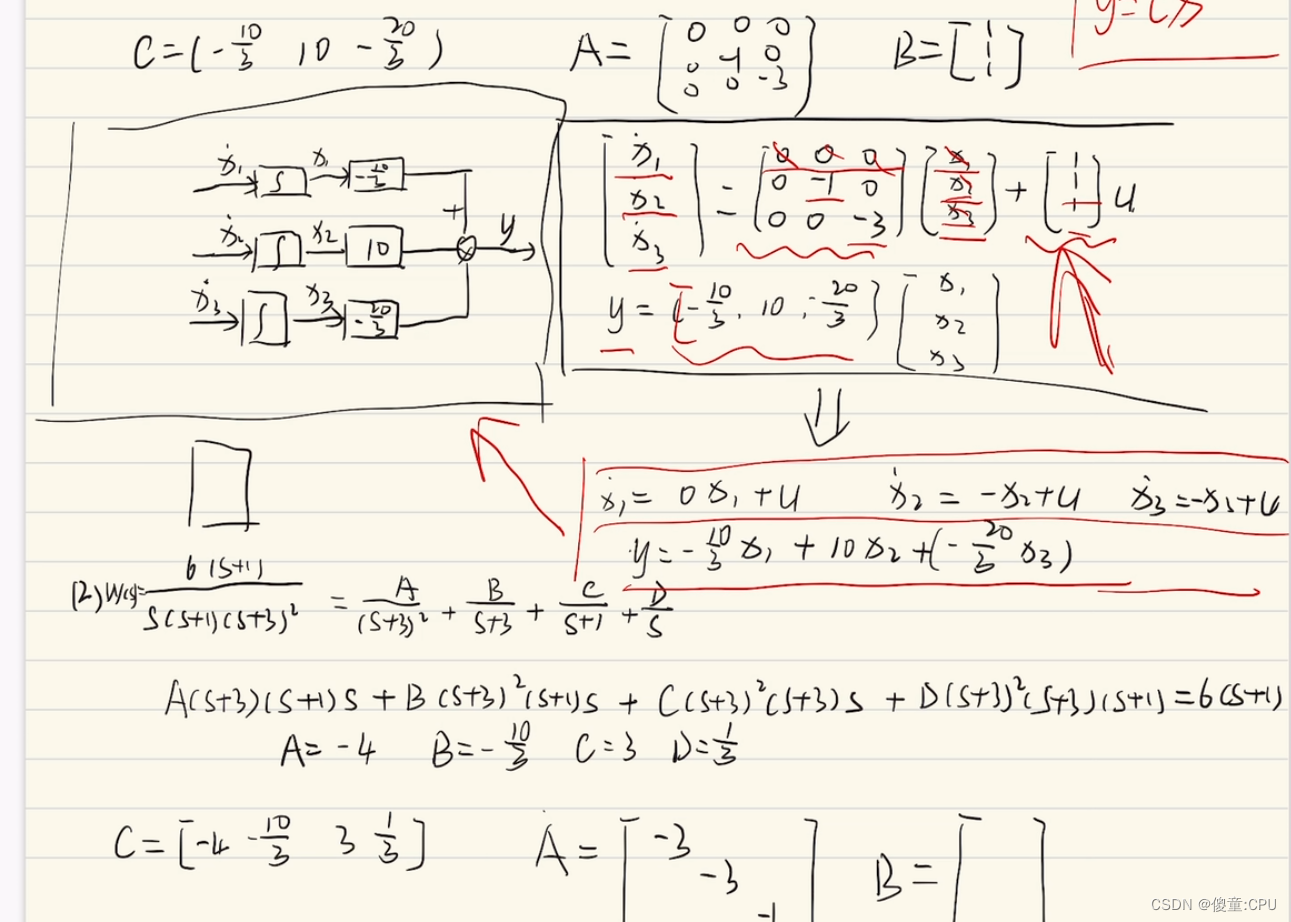 C=(-10/3 10 -20/3) A=[0 0 0; 0 -1 0; 0 0 -3] B=[1; 1; 1]
y=Cx
ẋ₁ ∫ x₁ -10/3
ẋ₂ ∫ x₂ 10 + y
ẋ₃ ∫ x₃ -20/3
[ẋ₁; ẋ₂; ẋ₃] = [0 0 0; 0 -1 0; 0 0 -3] [x₁; x₂; x₃] + [1; 1; 1] u
y = [-10/3, 10, -20/3] [x₁; x₂; x₃]
⇓
ẋ₁ = 0x₁+u ẋ₂ = -x₂+u ẋ₃ = -x₁+u
y = -10/3 x₁ + 10x₂ + (-20/3 x₃)
(2) W(s)= 6(s+1) / S(s+1)(s+3)² = A/(s+3)² + B/(s+3) + C/(s+1) + D/s
A(s+3)(s+1)s + B(s+3)²(s+1)s + C(s+3)²(s+3)s + D(s+3)²(s+3)(s+1) = 6(s+1)
A= -4 B= -10/3 C=3 D=1/3
C=[-4 -10/3 3 1/3] A=[-3 -3 -1 B=[ ]
CSDN @傻童:CPU